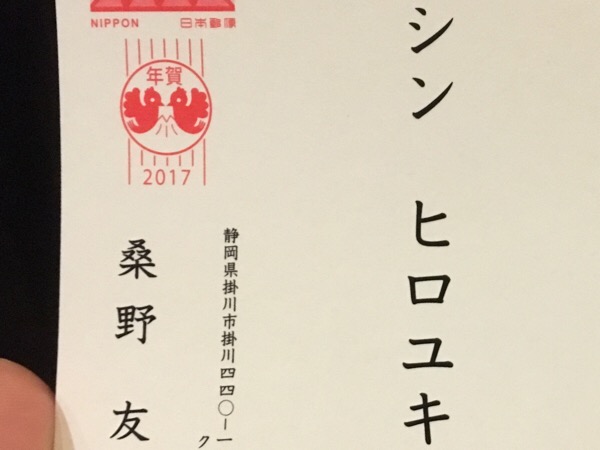 NIPPON 日本郵便
年賀
2017
シン ヒロユキ
静岡県掛川市掛川四四〇-一
ク
桑野 友